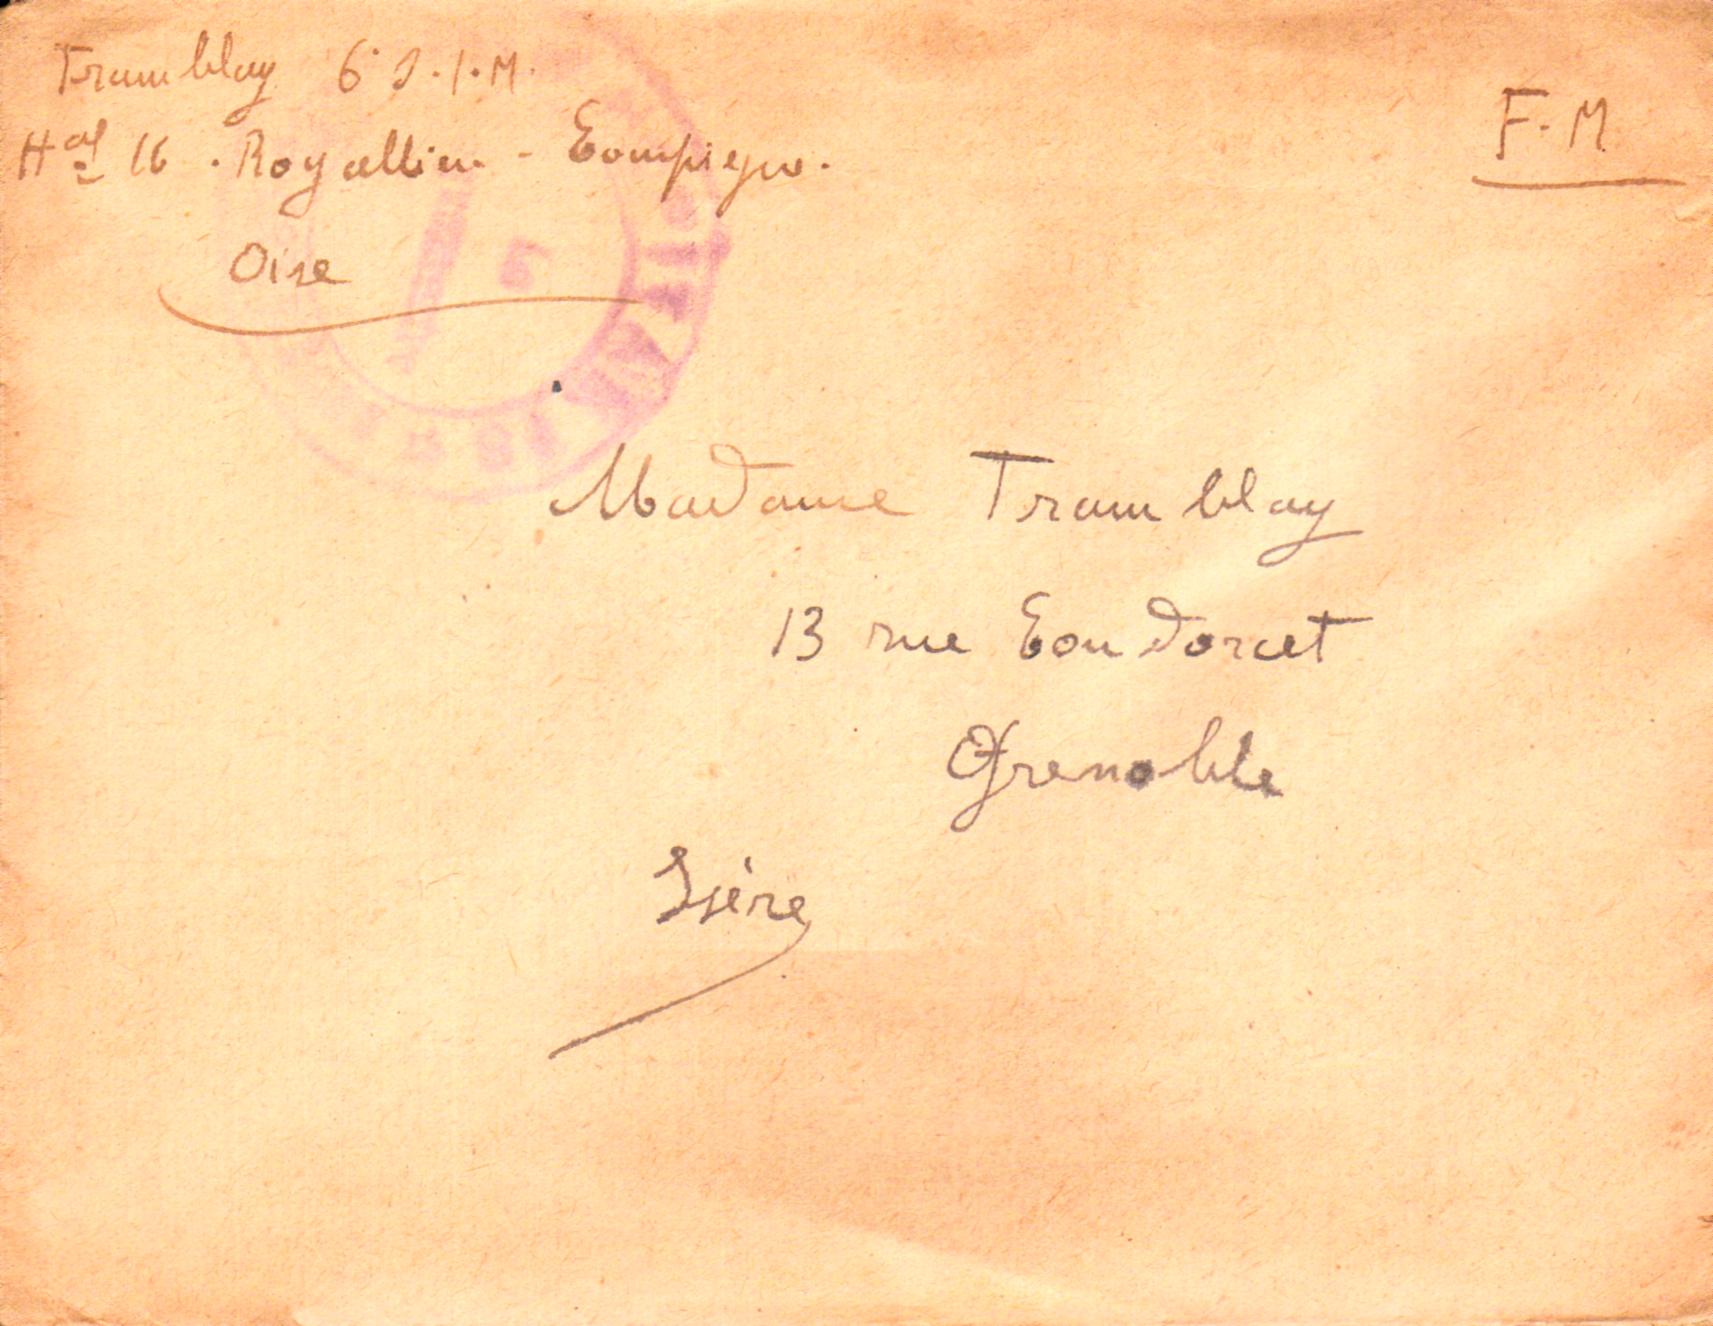 Tramblay 6e S.I.M.
Hal 16 . Royallieu - Compiègne.
Oise
F.M
Madame Tramblay
13 rue Condorcet
Grenoble
Isère